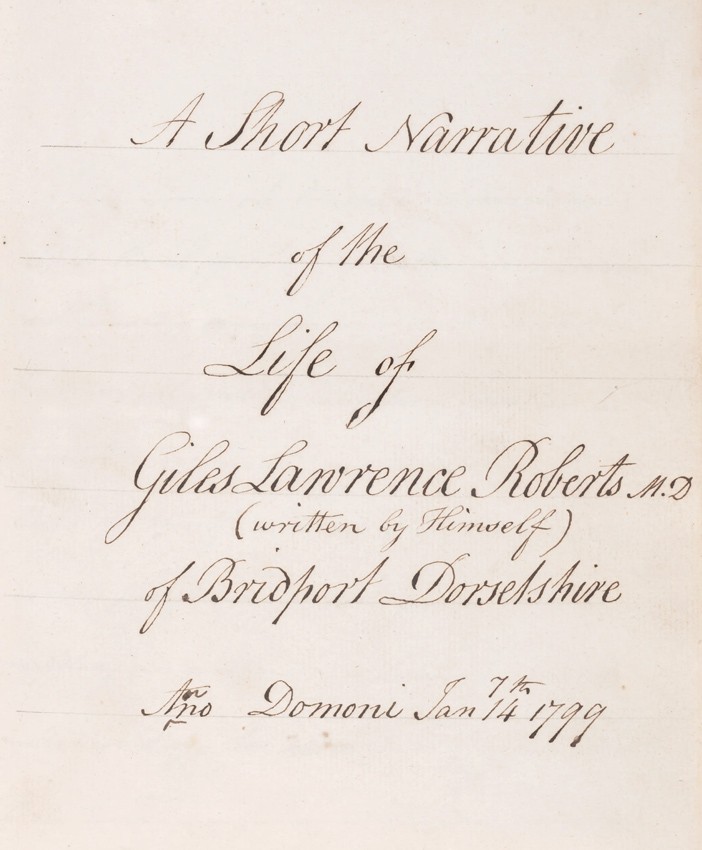 A Short Narrative
of the
Life of
Giles Lawrence Roberts M.D
(written by Himself)
of Bridport Dorsetshire
Año Domoni Jan 7th 14 1799